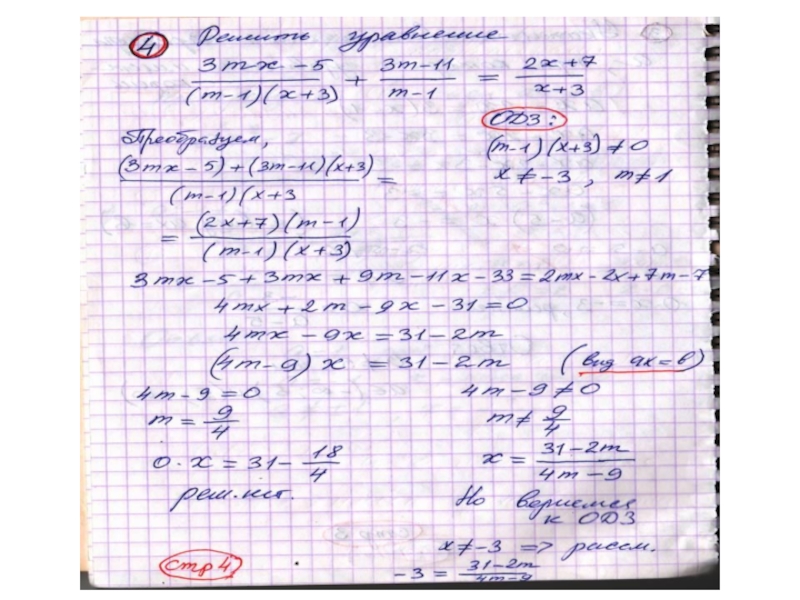 4 Решить уравнение
(3mx-5)/((m-1)(x+3)) + (3m-11)/(m-1) = (2x+7)/(x+3)
ОДЗ:
(m-1)(x+3)≠0
x≠-3, m≠1
Преобразуем,
((3mx-5)+(3m-11)(x+3))/((m-1)(x+3) =
= ((2x+7)(m-1))/((m-1)(x+3))
3mx-5+3mx+9m-11x-33=2mx-2x+7m-7
4mx+2m-9x-31=0
4mx-9x=31-2m
(4m-9)x=31-2m (вид ax=b)
4m-9=0
m=9/4
0·x=31-18/4
реш. нет.
4m-9≠0
m≠9/4
x=(31-2m)/(4m-9)
Но вернемся
к ОДЗ
x≠-3 => рассм.
-3=(31-2m)/(4m-9)
стр 4